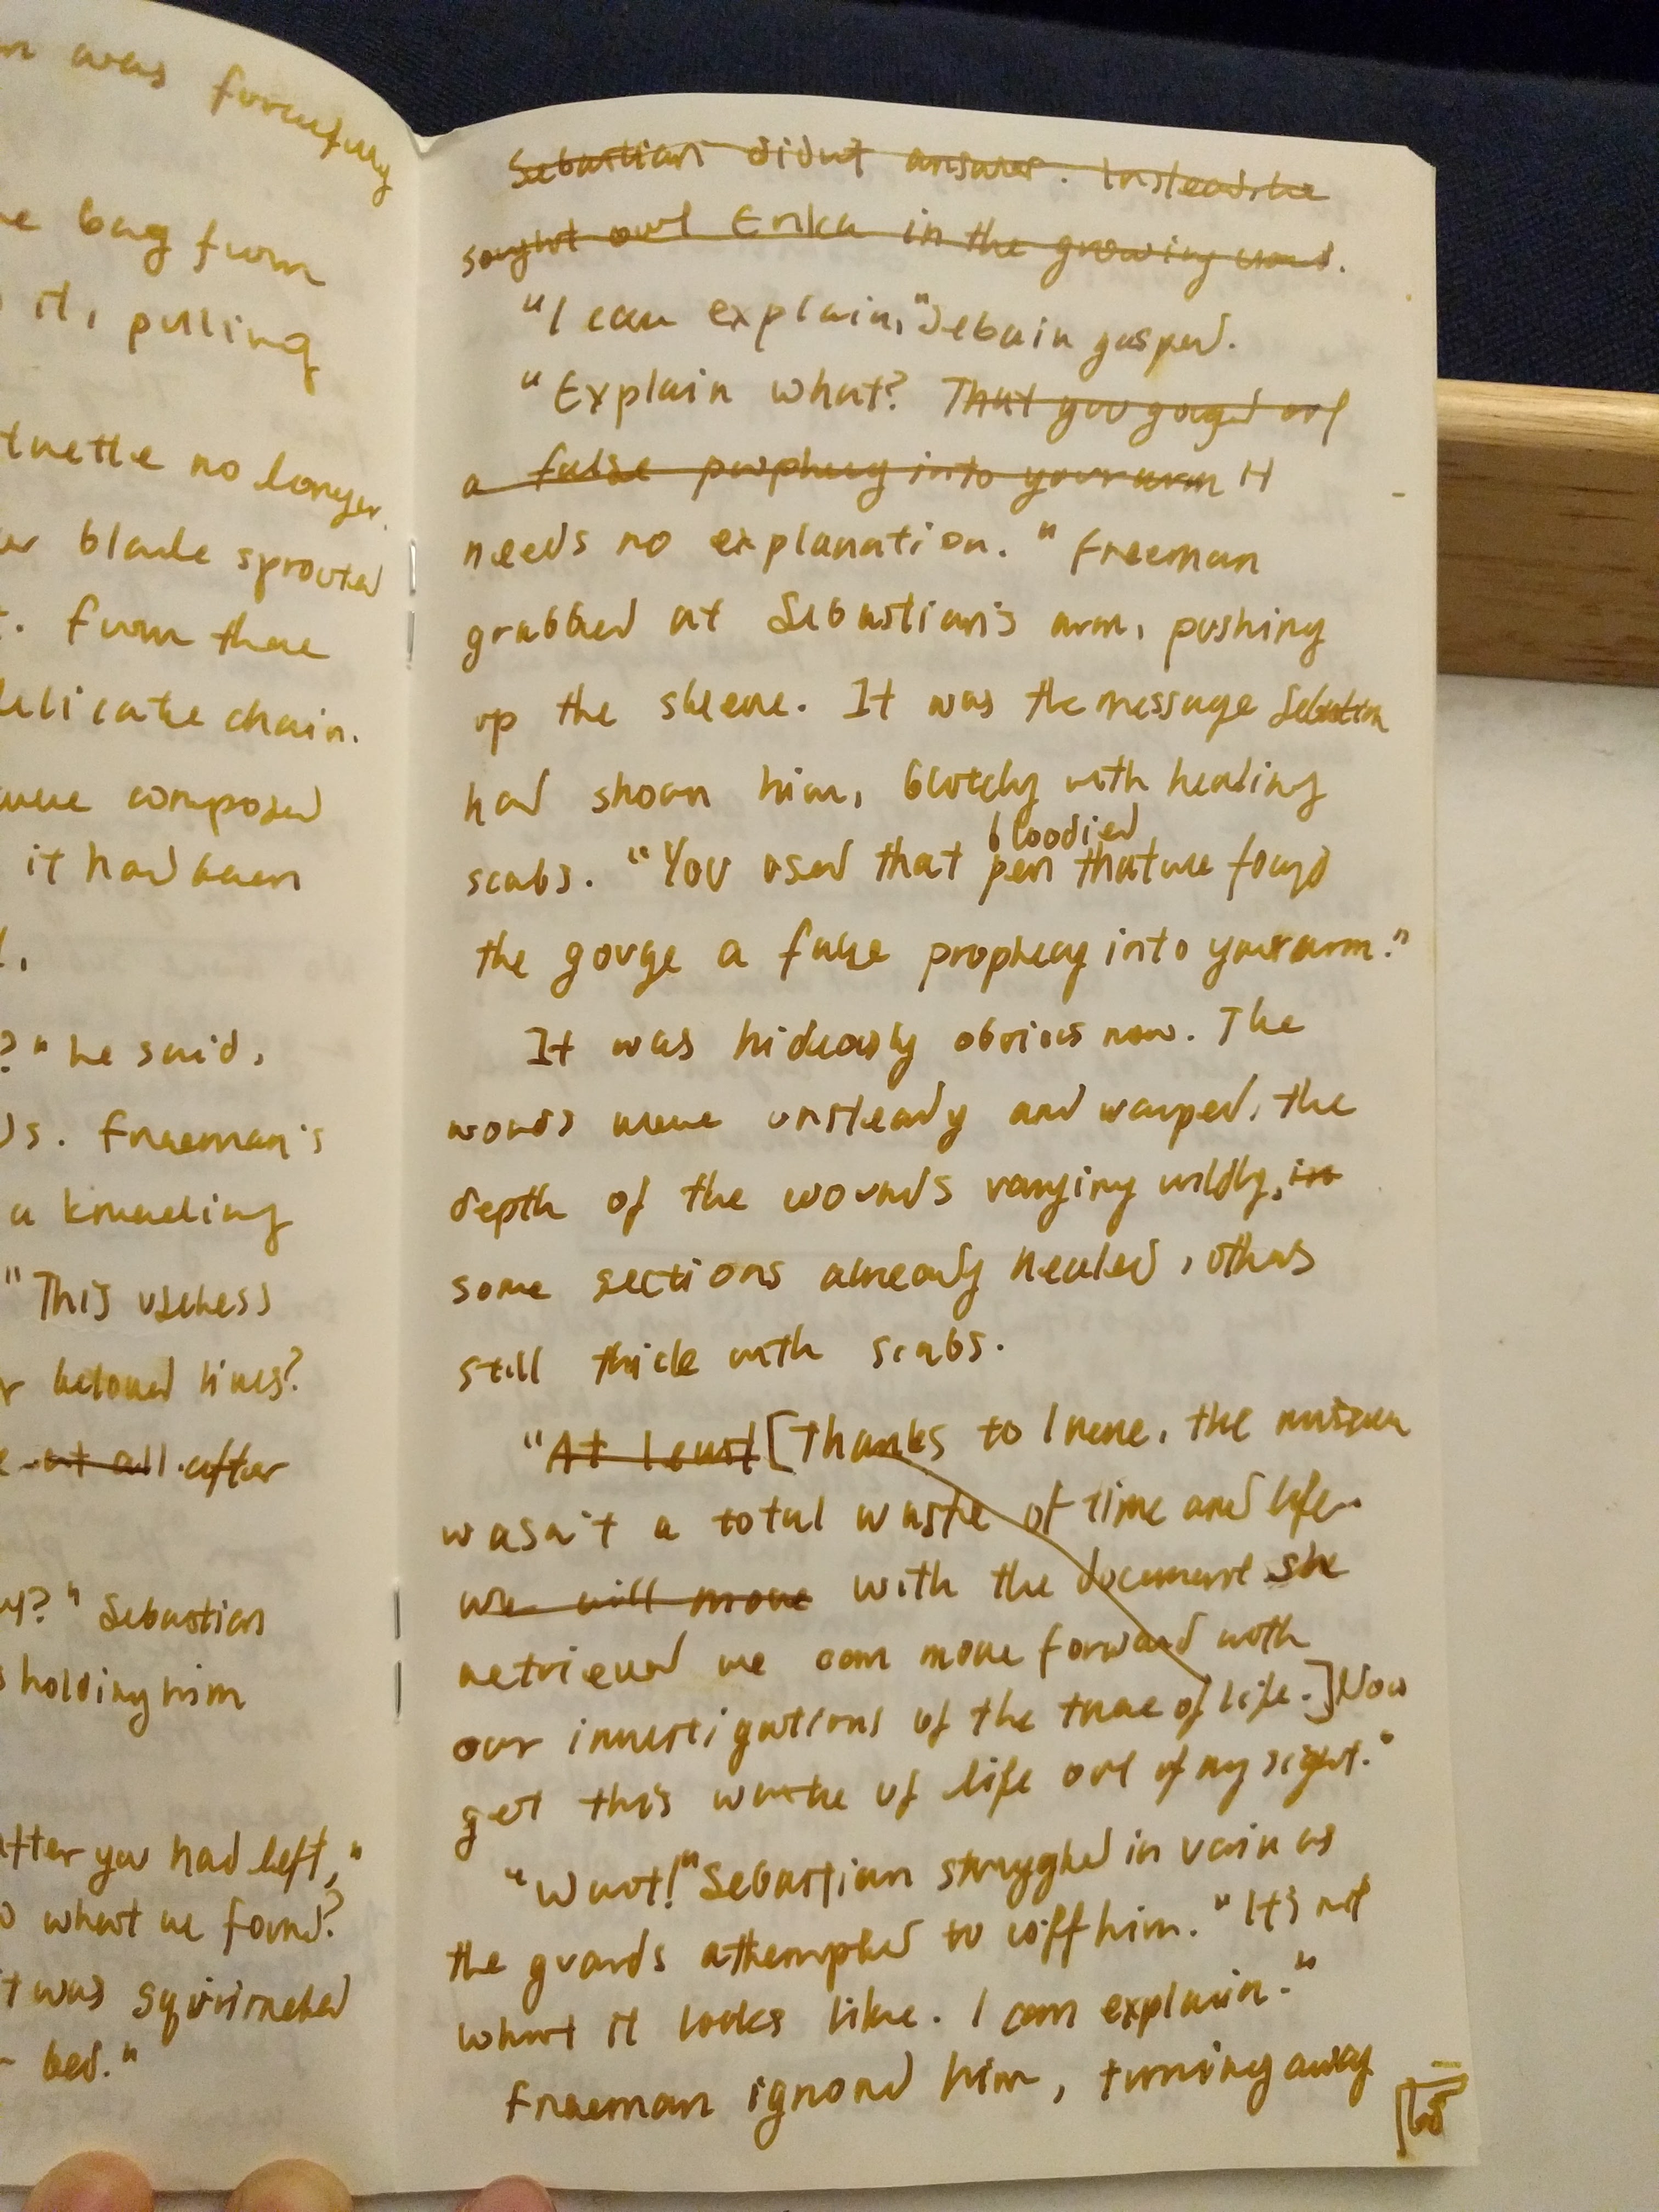 was forcefully
bag from
it, pulling
no longer.
blade sprouted
. From there
delicate chain.
were composed
it had been
?" he said,
. Freeman's
a kneeling
"This useless
beloved lives?
at all after
?" Sebastian
holding him
after you had left,"
what we found?
was squirreled
bed."
Sebastian didnt answer. Instead he
sought out Erika in the growing crowd.
"I can explain," Sebain gasped.
"Explain what? That you gouged out
a false prophecy into your arm It
needs no explanation." Freeman
grabbed at Sebastian's arm, pushing
up the sleeve. It was the message Sebastian
had shown him, blotchy with healing
bloodied
scabs. "You used that pen that we found
the gouge a false prophecy into your arm."
It was hideously obvious now. The
words were unsteady and warped, the
depth of the wounds varying wildly, in
some sections already healed, others
still thick with scabs.
"At least [Thanks to Irene, the mission
wasn't a total waste of time and life.
we will move with the document she
retrieved we can move forward with
our investigations of the tree of life.] Now
get this waste of life out of my sight."
"Wait!" Sebastian struggled in vain as
the guards attempted to cuff him. "It's not
what it looks like. I can explain."
Freeman ignored him, turning away
68